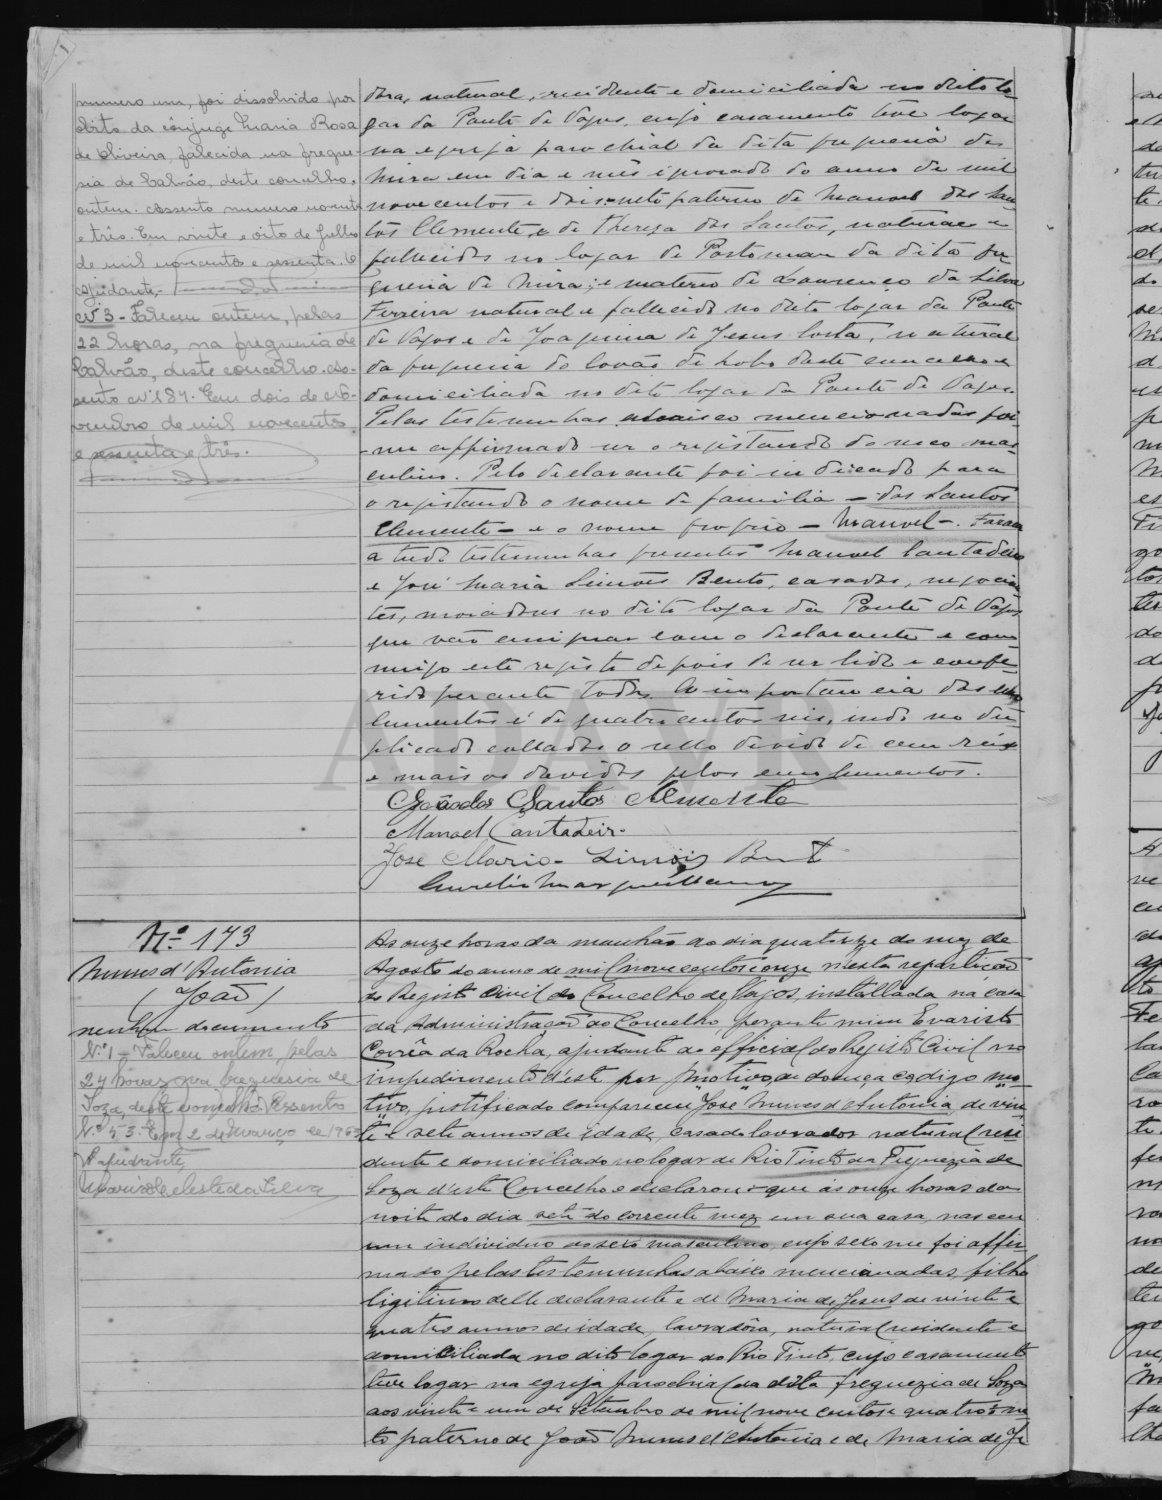 numero um, foi dissolvido por
obito da cônjuge Maria Rosa
de Oliveira, falecida na fregue-
sia de Calvão, deste concelho,
ontem. Assento numero noventa
e três. Em vinte e oito de Julho
de mil novecentos e sessenta. O
ajudante,
Nº 3 - Faleceu ontem, pelas
22 horas, na freguesia de
Calvão, deste concelho. As-
sento Nº 187. Em dois de No-
vembro de mil novecentos
e sessenta e três.
dora, natural, residente e domiciliada no dito lo-
gar da Ponte de Vagos, cujo casamento teve logar
na egreja parochial da dita freguesia de
Mira em dia e mês ignorado do anno de mil
novecentos e dois: neto paterno de Manoel dos San-
tos Clemente, e de Thereza dos Santos, naturaes e
fallecidos no logar de Portomar da dita fre-
guesia de Mira; e materno de Lourenço da Silva
Ferreira natural e fallecido no dito logar da Ponte
de Vagos e de Joaquina de Jesus Costa, natural
da freguesia do Covão do Lobo deste concelho e
domiciliada no dito logar da Ponte de Vagos.
Pelas testemunhas abaixo mencionadas foi-
me affirmado ser o registando do sexo mas-
culino. Pelo declarante foi indicado para
o registando o nome de familia - dos Santos
Clemente - e o nome proprio - Manoel -. Foram
a tudo testemunhas presentes Manoel Cantadeiro
e José Maria Simões Bento, casados, negocian-
tes, moradores no dito logar da Ponte de Vagos
que vão assignar com o declarante e com-
migo este registo depois de ser lido e confe-
rido perante todos. A importancia dos emo-
lumentos é de quatrocentos reis, indo no du-
plicado collados o sello devido de cem réis
e mais os devidos pelos emolumentos.
João dos Santos Clemente
Manoel Cantadeiro
José Maria Simões Bento
Nº 173
Nunes d'Antonia
(João)
nenhum documento
N.º 1 - Faleceu ontem, pelas
24 horas, na freguesia de
Soza, deste concelho. Assento
N.º 53. Em 2 de Março de 1963
O ajudante,
Maria Celeste da Silva
As onze horas da manhã do dia quatorze do mez de
Agosto do anno de mil nove centos e onze n'esta repartição
do Registo Civil do Concelho de Vagos, installada na casa
da Administração do Concelho, perante mim Evaristo
Corrêa da Rocha, ajudante do official do Registo Civil no
impedimento d'este por motivo de doença e digo mo-
tivo, justificado compareceu "José" Nunes d'Antonia, de vin-
te e sete annos de idade, casado lavrador natural resi-
dente e domiciliado no logar de Rio Tinto da Freguezia de
Soza d'este Concelho e declarou: que ás onze horas da
noite do dia sete do corrente mez em sua casa, nasceu
um individuo do sexo masculino, cujo sexo me foi affir-
mado pelas testemunhas abaixo mencionadas, filho
ligitimo delle declarante e de Maria de Jesus de vinte e
quatro annos de idade, lavradôra, natural residente e
domiciliada no dito logar do Rio Tinto, cujo casamento
teve logar na egreja parochial da dita freguezia de Soza
aos vinte e um de Setembro de mil nove centos e quatro; ne-
to paterno de João Nunes d'Antonia e de Maria de Je-
ADAVR